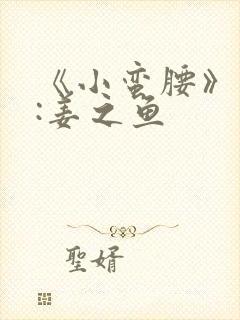 《小蛮腰》
:姜之鱼
聖婿